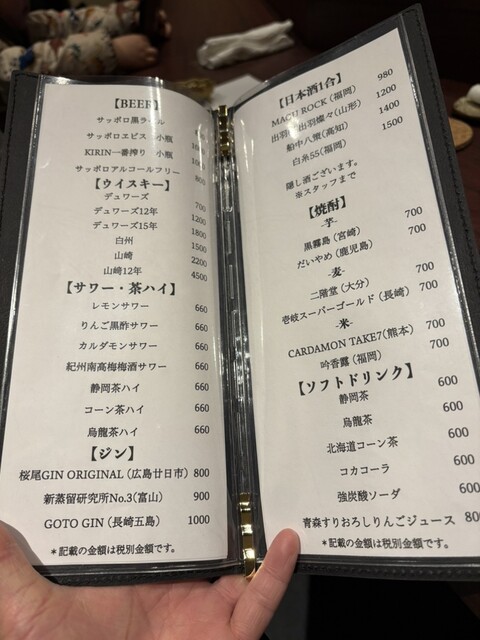 【BEER】
サッポロ黒ラベル
サッポロヱビス 小瓶
KIRIN一番搾り 小瓶
サッポロアルコールフリー 800
【ウイスキー】
デュワーズ 700
デュワーズ12年 1200
デュワーズ15年 1800
白州 1500
山崎 2200
山崎12年 4500
【サワー・茶ハイ】
レモンサワー 660
りんご黒酢サワー 660
カルダモンサワー 660
紀州南高梅梅酒サワー 660
静岡茶ハイ 660
コーン茶ハイ 660
烏龍茶ハイ 660
【ジン】
桜尾GIN ORIGINAL（広島廿日市）800
新蒸留研究所No.3(富山) 900
GOTO GIN（長崎五島） 1000
＊記載の金額は税別金額です。
【日本酒1合】
MAGU ROCK（福岡） 980
出羽桜出羽燦々(山形) 1200
船中八策(高知) 1400
白糸55(福岡) 1500
隠し酒ございます。
※スタッフまで
【焼酎】
-芋-
黒霧島（宮崎） 700
だいやめ（鹿児島） 700
-麦-
二階堂（大分） 700
壱岐スーパーゴールド（長崎） 700
-米-
CARDAMON TAKE7(熊本) 700
吟香露（福岡） 700
【ソフトドリンク】
静岡茶 600
烏龍茶 600
北海道コーン茶 600
コカコーラ 600
強炭酸ソーダ 600
青森すりおろしりんごジュース 800
＊記載の金額は税別金額です。